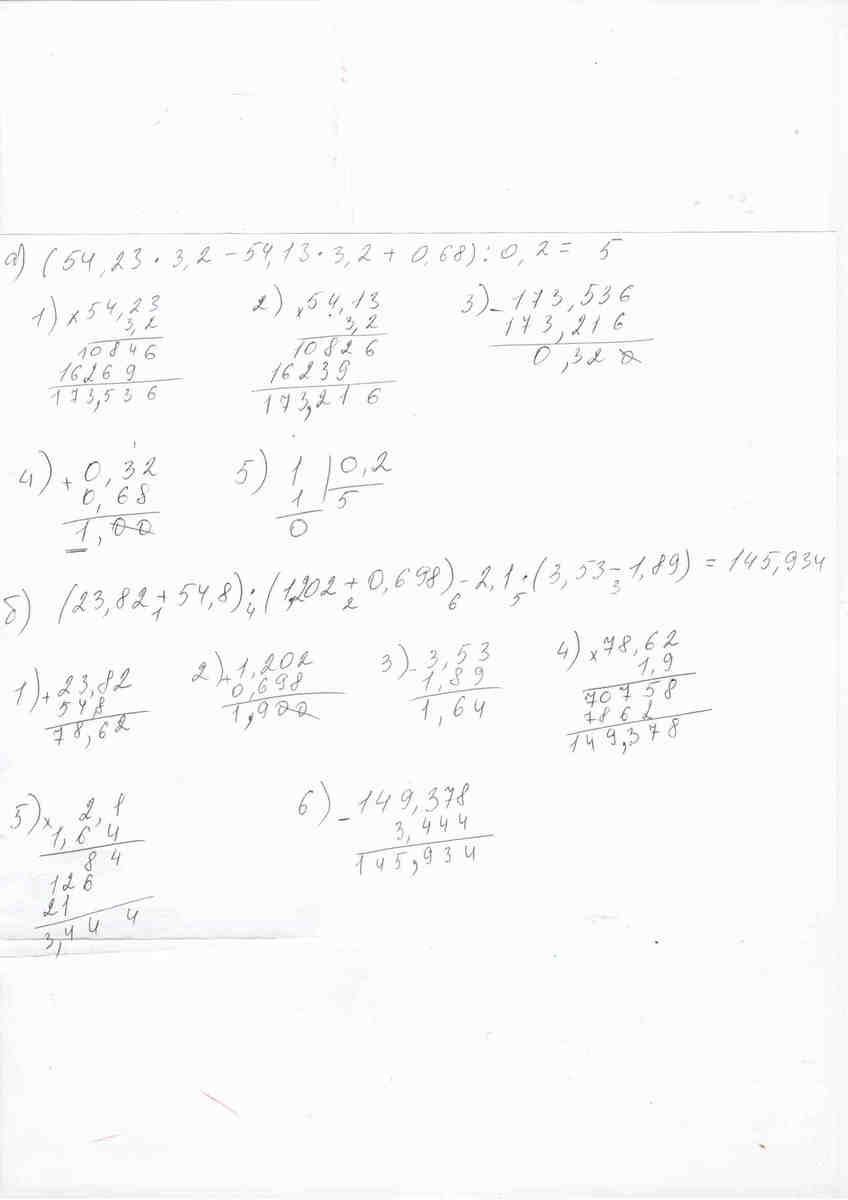 а) (54,23 · 3,2 - 54,13 · 3,2 + 0,68) : 0,2 = 5
1) × 54,23 2) × 54,13 3) - 173,536
3,2 3,2 173,216
10846 10826 0,320
16269 16239
173,536 173,216
4) + 0,32 5) 1 | 0,2
0,68 1 5
1,00 0
б) (23,82 + 54,8) · (1,202 + 0,698) - 2,1 · (3,53 - 1,89) = 145,934
1 4 2 6 5 3
1) + 23,82 2) + 1,202 3) - 3,53 4) × 78,62
54,8 0,698 1,89 1,9
78,62 1,900 1,64 70758
7862
149,378
5) × 2,1 6) - 149,378
1,64 3,444
84 145,934
126
21
3,444